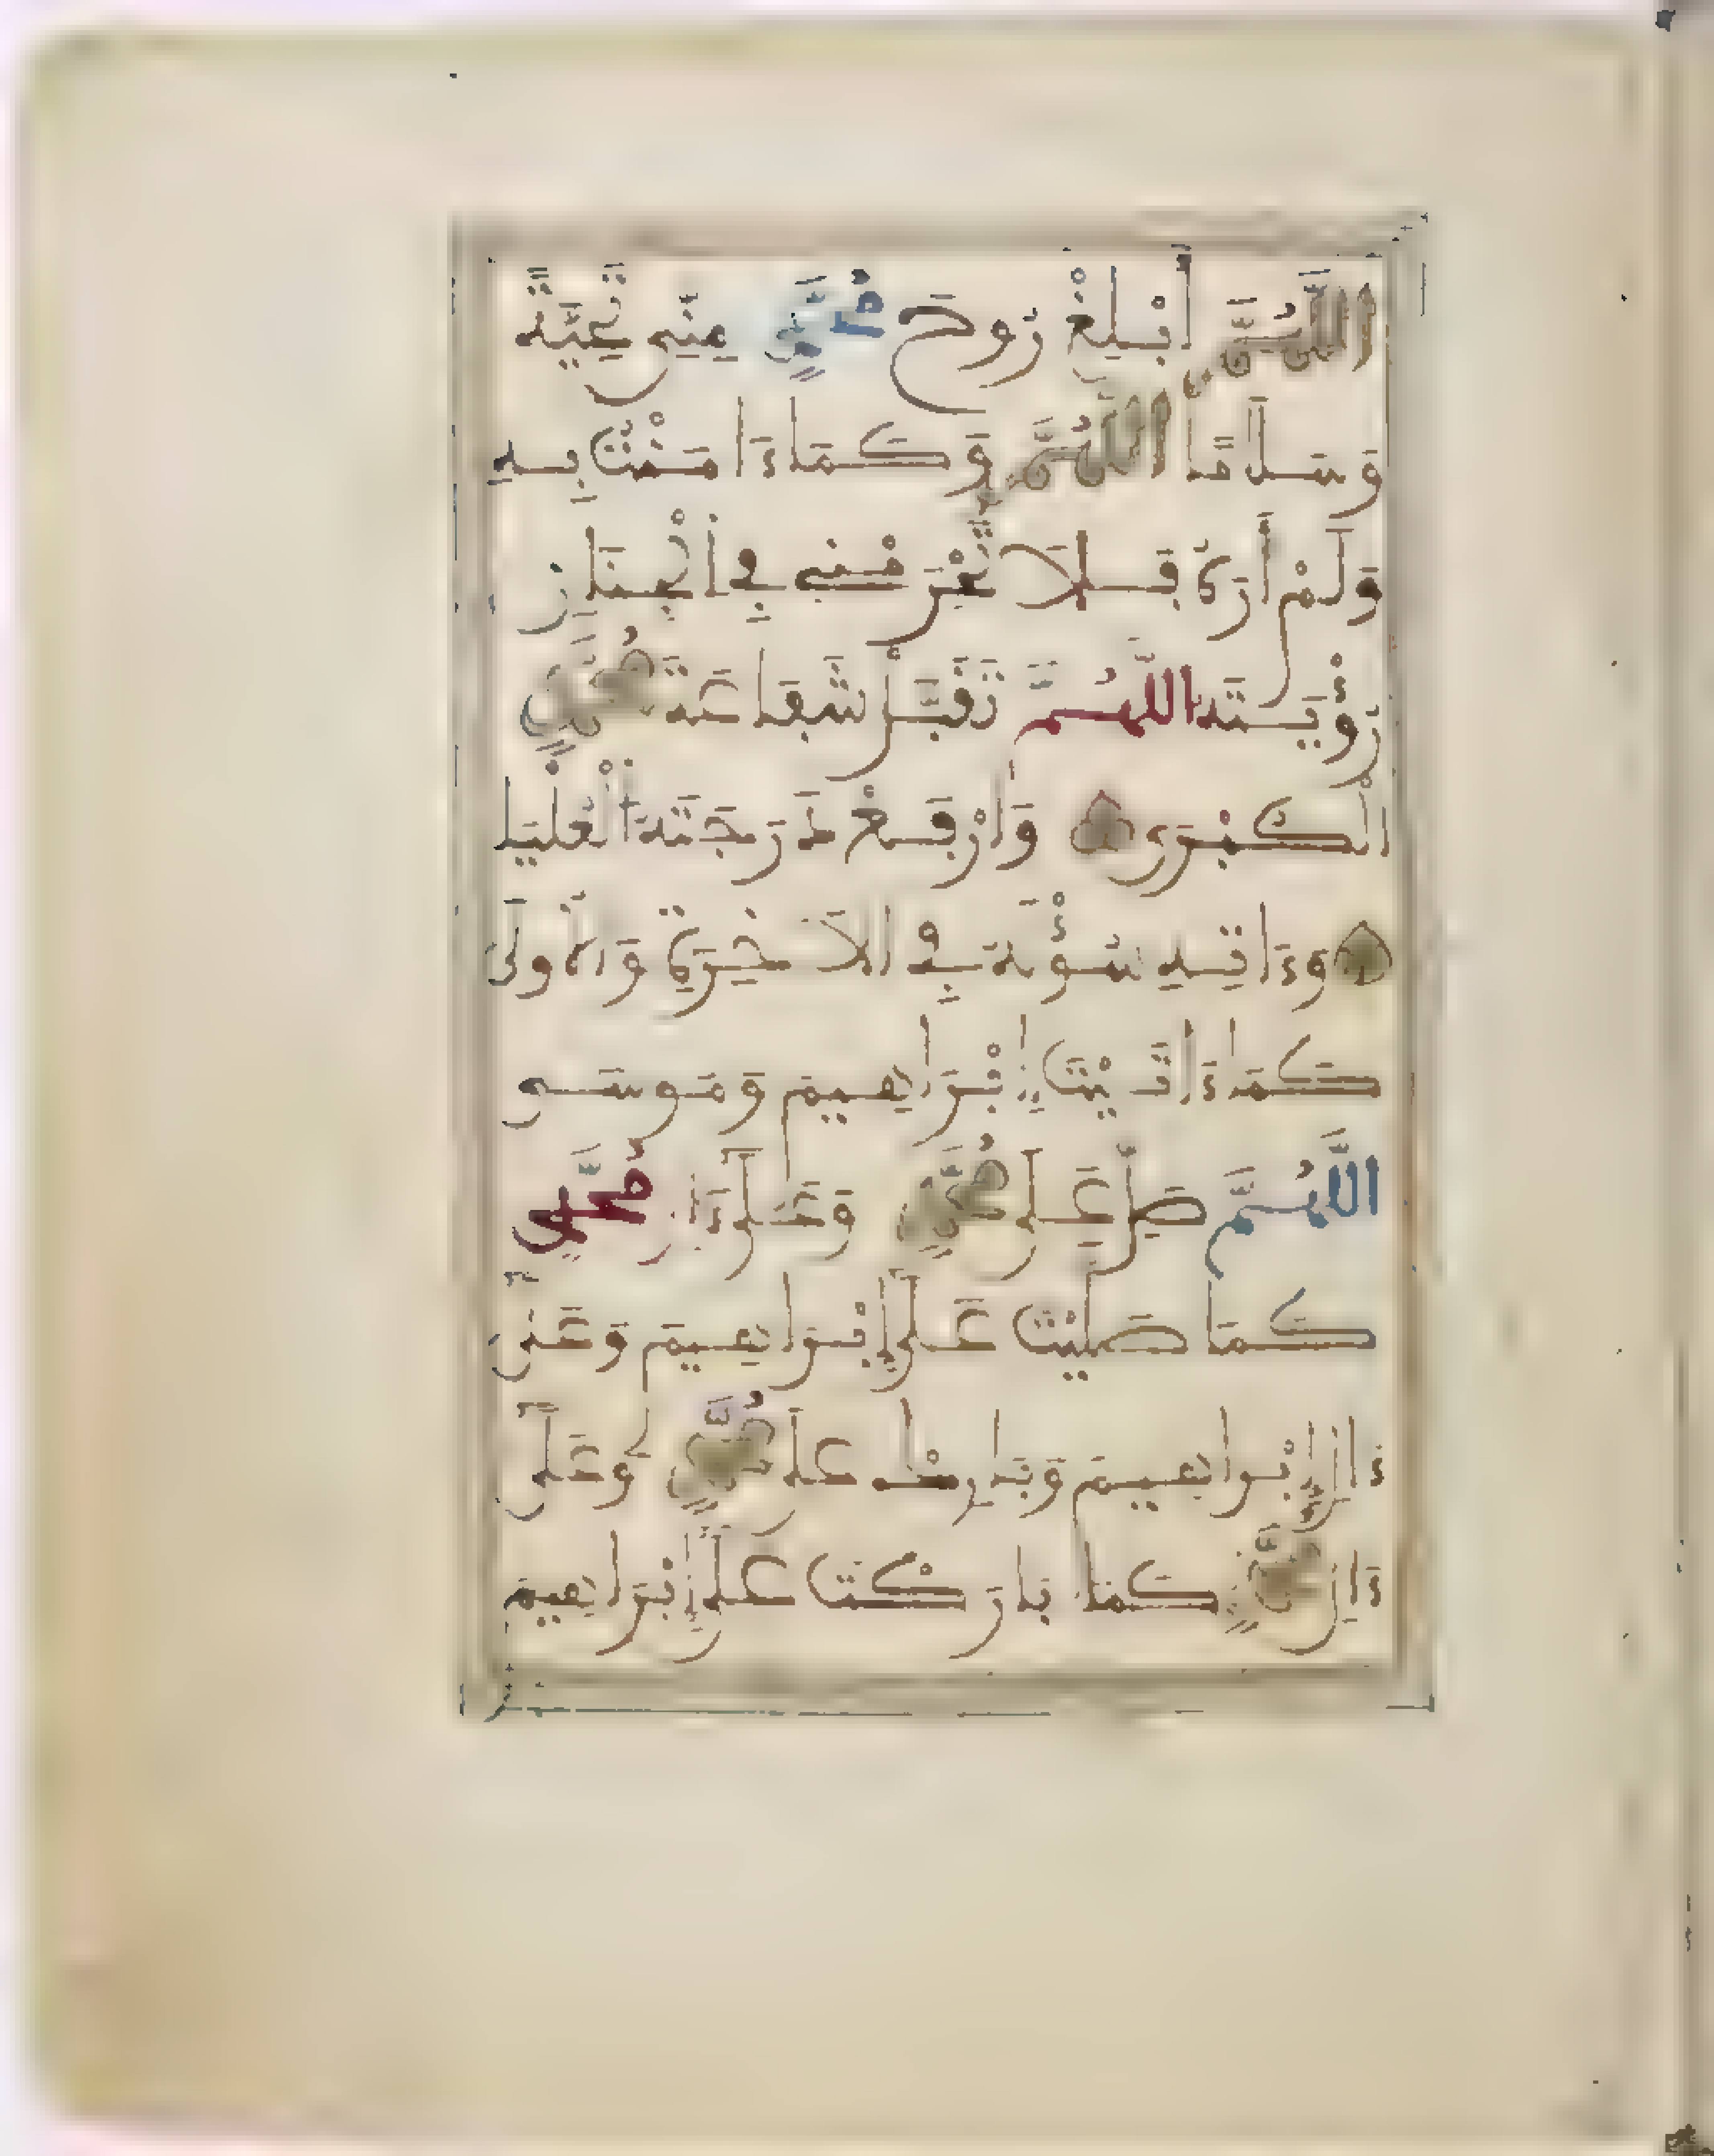 اللَّهُمَّ أَبْلِغْ رُوحَ مُحَمَّدٍ مِنِّي تَحِيَّةً
وَسَلَامًا اللَّهُمَّ وَكَمَا ءَامَنْتُ بِهِ
وَلَمْ أَرَهُ فَلَا تَحْرِمْنِي فِي الْجِنَانِ
رُؤْيَتَهُ اللَّهُمَّ تَقَبَّلْ شَفَاعَةَ مُحَمَّدٍ
الْكُبْرَى وَارْفَعْ دَرَجَتَهُ الْعُلْيَا
وَءَاتِهِ سُؤْلَهُ فِي الْاَخِرَةِ وَالْاُولَى
كَمَا ءَاتَيْتَ إِبْرَاهِيمَ وَمُوسَى
اللَّهُمَّ صَلِّ عَلَى مُحَمَّدٍ وَعَلَى ءَالِ مُحَمَّدٍ
كَمَا صَلَّيْتَ عَلَى إِبْرَاهِيمَ وَعَلَى
ءَالِ إِبْرَاهِيمَ وَبَارِكْ عَلَى مُحَمَّدٍ وَعَلَى
ءَالِ مُحَمَّدٍ كَمَا بَارَكْتَ عَلَى إِبْرَاهِيمَ